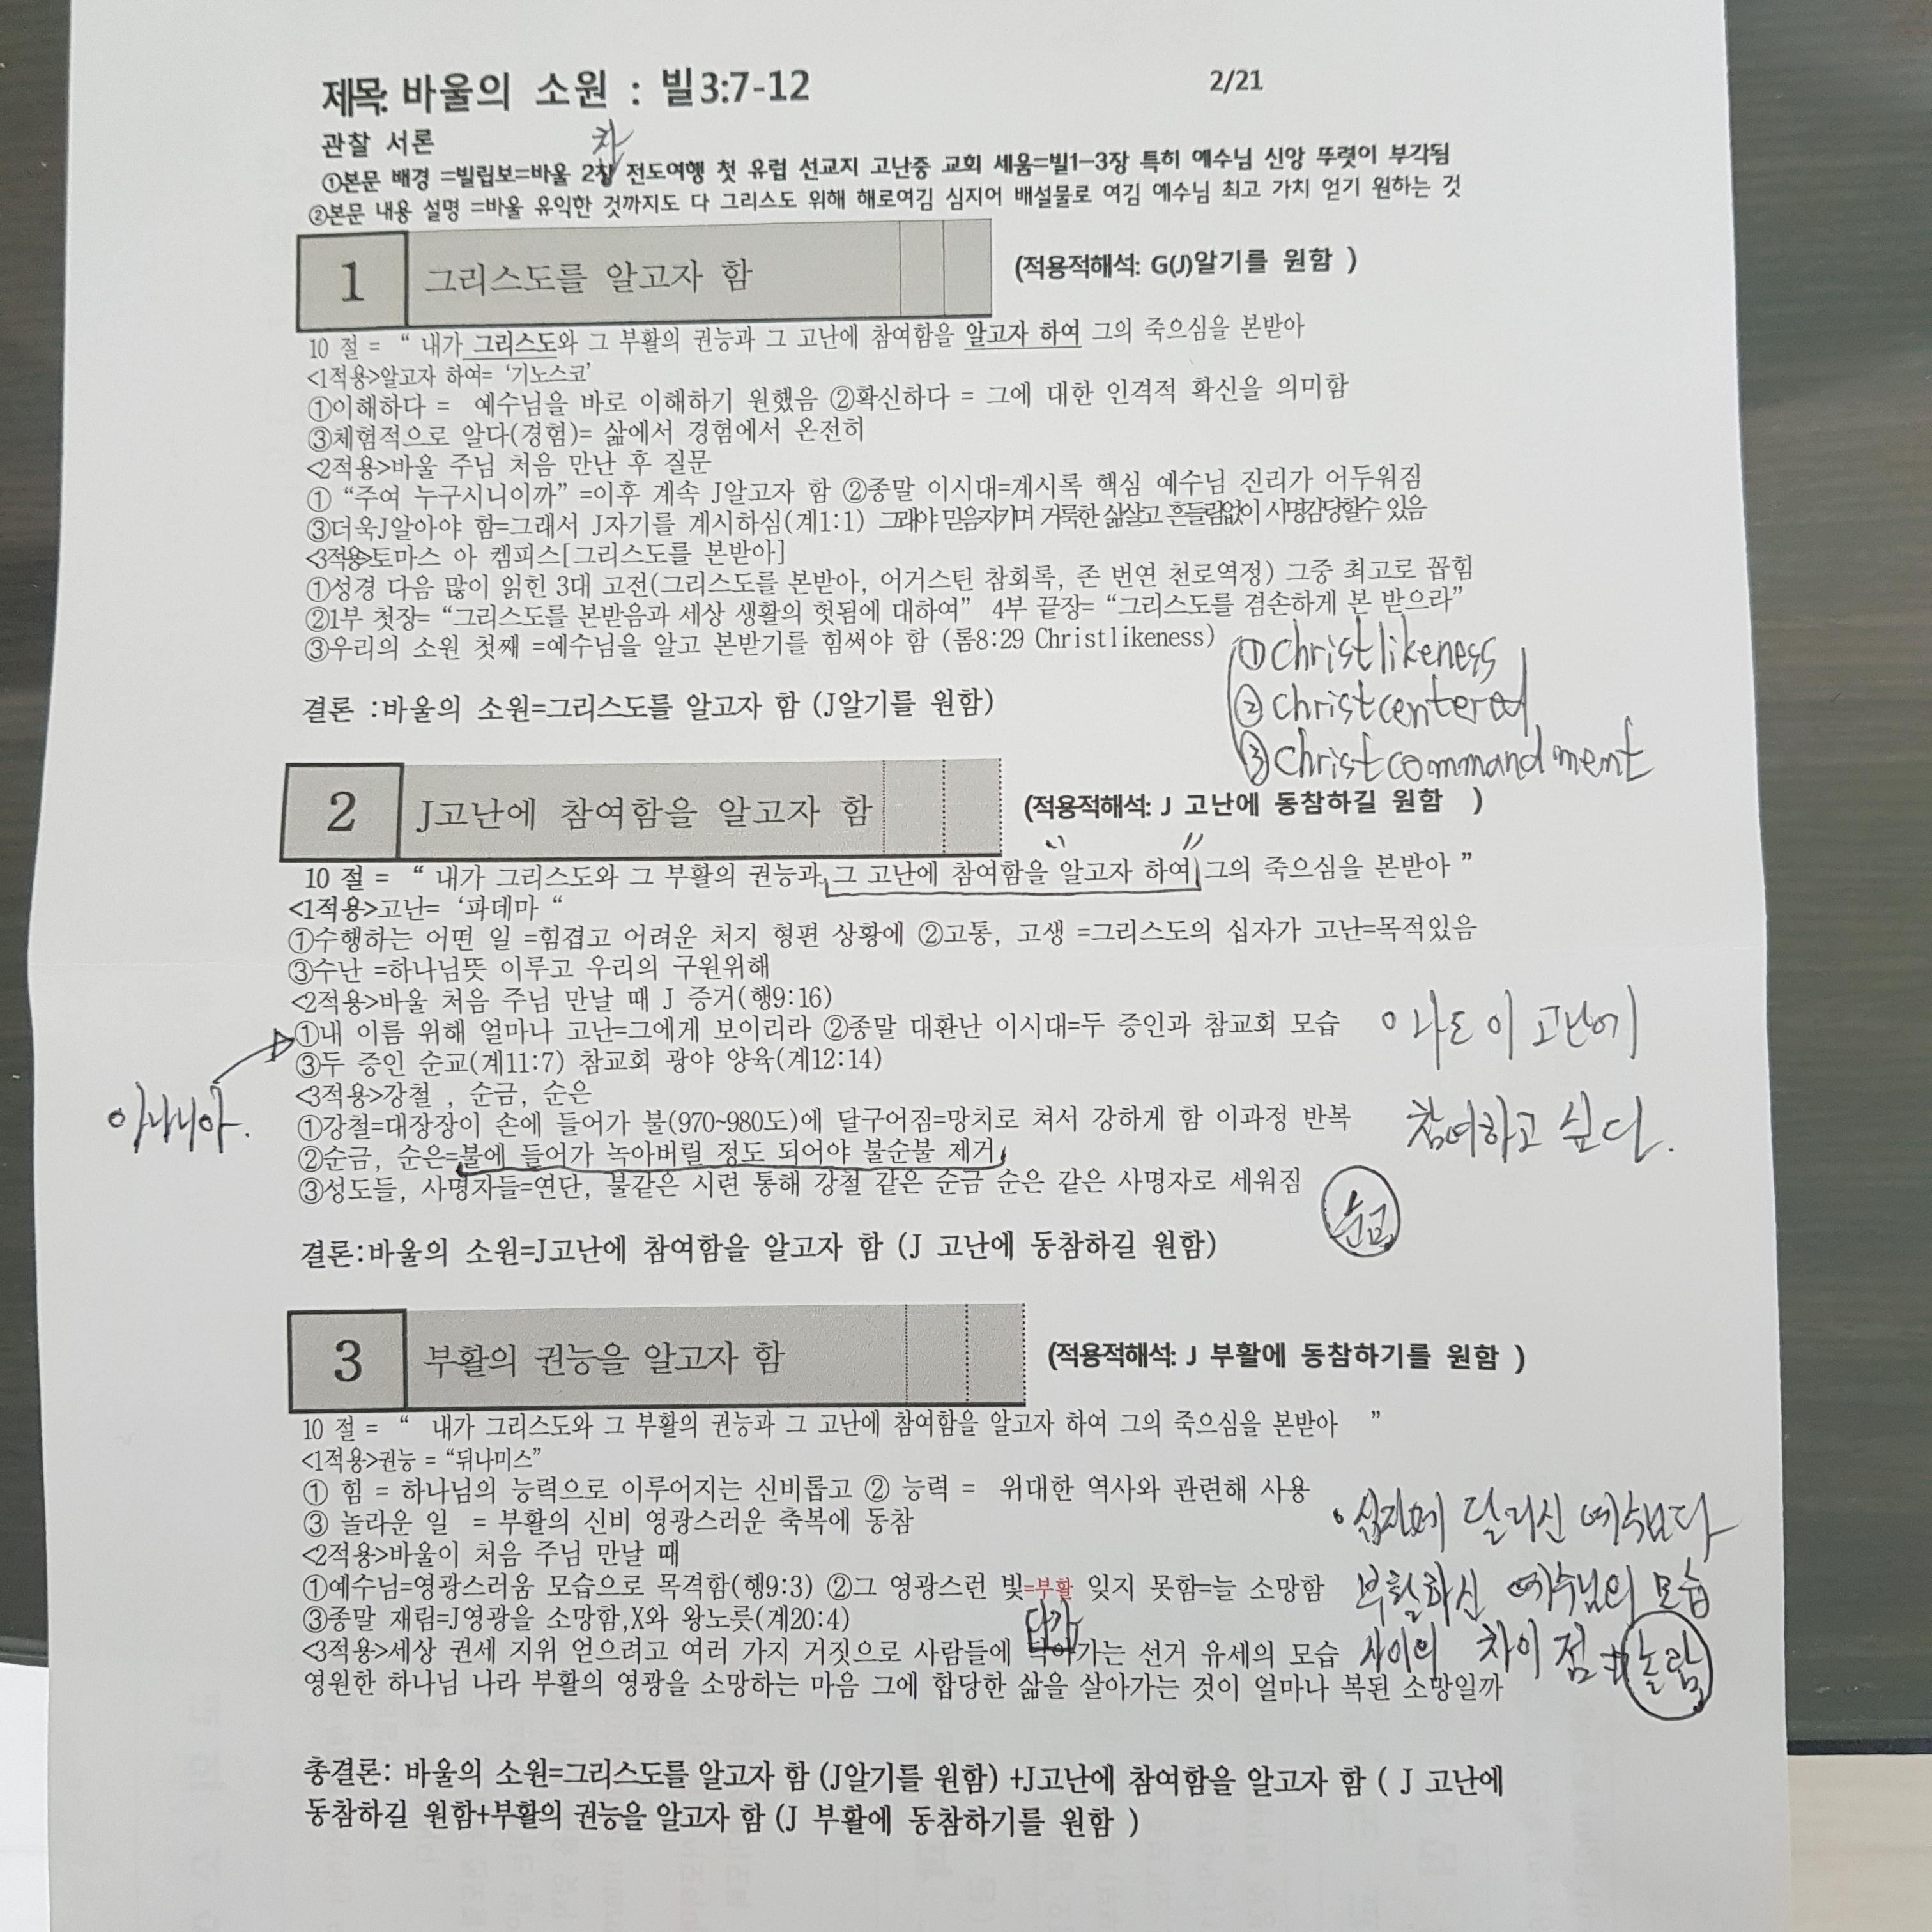 제목: 바울의 소원 : 빌3:7-12 2/21
관찰 서론
차
①본문 배경 =빌립보=바울 2차 전도여행 첫 유럽 선교지 고난중 교회 세움=빌1-3장 특히 예수님 신앙 뚜렷이 부각됨
②본문 내용 설명 =바울 유익한 것까지도 다 그리스도 위해 해로여김 심지어 배설물로 여김 예수님 최고 가치 얻기 원하는 것
1 그리스도를 알고자 함 (적용적해석: G(J)알기를 원함 )
10 절 = “ 내가 그리스도와 그 부활의 권능과 그 고난에 참여함을 알고자 하여 그의 죽으심을 본받아
<1적용>알고자 하여= ‘기노스코’
①이해하다 = 예수님을 바로 이해하기 원했음 ②확신하다 = 그에 대한 인격적 확신을 의미함
③체험적으로 알다(경험)= 삶에서 경험에서 온전히
<2적용>바울 주님 처음 만난 후 질문
① “주여 누구시니이까” =이후 계속 J알고자 함 ②종말 이시대=계시록 핵심 예수님 진리가 어두워짐
③더욱J알아야 함=그래서 J자기를 계시하심(계1:1) 그래야 믿음지키며 거룩한 삶살고 흔들림없이 사명감당할수 있음
<3적용>토마스 아 켐피스[그리스도를 본받아]
①성경 다음 많이 읽힌 3대 고전(그리스도를 본받아, 어거스틴 참회록, 존 번연 천로역정) 그중 최고로 꼽힘
②1부 첫장= “그리스도를 본받음과 세상 생활의 헛됨에 대하여” 4부 끝장= “그리스도를 겸손하게 본 받으라”
③우리의 소원 첫째 =예수님을 알고 본받기를 힘써야 함 (롬8:29 Christlikeness)
①christlikeness
②christcentered
③christcommandment
결론 :바울의 소원=그리스도를 알고자 함 (J알기를 원함)
2 J고난에 참여함을 알고자 함 (적용적해석: J 고난에 동참하길 원함 )
10 절 = “ 내가 그리스도와 그 부활의 권능과 그 고난에 참여함을 알고자 하여 그의 죽으심을 본받아 ”
<1적용>고난= ‘파데마 “
①수행하는 어떤 일 =힘겹고 어려운 처지 형편 상황에 ②고통, 고생 =그리스도의 십자가 고난=목적있음
③수난 =하나님뜻 이루고 우리의 구원위해
<2적용>바울 처음 주님 만날 때 J 증거(행9:16)
①내 이름 위해 얼마나 고난=그에게 보이리라 ②종말 대환난 이시대=두 증인과 참교회 모습
③두 증인 순교(계11:7) 참교회 광야 양육(계12:14)
아나니아.
나도 이 고난에
참여하고 싶다.
<3적용>강철 , 순금, 순은
①강철=대장장이 손에 들어가 불(970~980도)에 달구어짐=망치로 쳐서 강하게 함 이과정 반복
②순금, 순은=불에 들어가 녹아버릴 정도 되어야 불순불 제거
③성도들, 사명자들=연단, 불같은 시련 통해 강철 같은 순금 순은 같은 사명자로 세워짐
순교
결론:바울의 소원=J고난에 참여함을 알고자 함 (J 고난에 동참하길 원함)
3 부활의 권능을 알고자 함 (적용적해석: J 부활에 동참하기를 원함 )
10 절 = “ 내가 그리스도와 그 부활의 권능과 그 고난에 참여함을 알고자 하여 그의 죽으심을 본받아 ”
<1적용>권능 = “뒤나미스”
① 힘 = 하나님의 능력으로 이루어지는 신비롭고 ② 능력 = 위대한 역사와 관련해 사용
③ 놀라운 일 = 부활의 신비 영광스러운 축복에 동참
<2적용>바울이 처음 주님 만날 때
①예수님=영광스러움 모습으로 목격함(행9:3) ②그 영광스런 빛=부활 잊지 못함=늘 소망함
③종말 재림=J영광을 소망함,X와 왕노릇(계20:4)
다가
<3적용>세상 권세 지위 얻으려고 여러 가지 거짓으로 사람들에 가는 선거 유세의 모습
영원한 하나님 나라 부활의 영광을 소망하는 마음 그에 합당한 삶을 살아가는 것이 얼마나 복된 소망일까
달리신
부활하신 예수님의 모습
사이의 차이 점 놀람
총결론: 바울의 소원=그리스도를 알고자 함 (J알기를 원함) +J고난에 참여함을 알고자 함 ( J 고난에
동참하길 원함+부활의 권능을 알고자 함 (J 부활에 동참하기를 원함 )